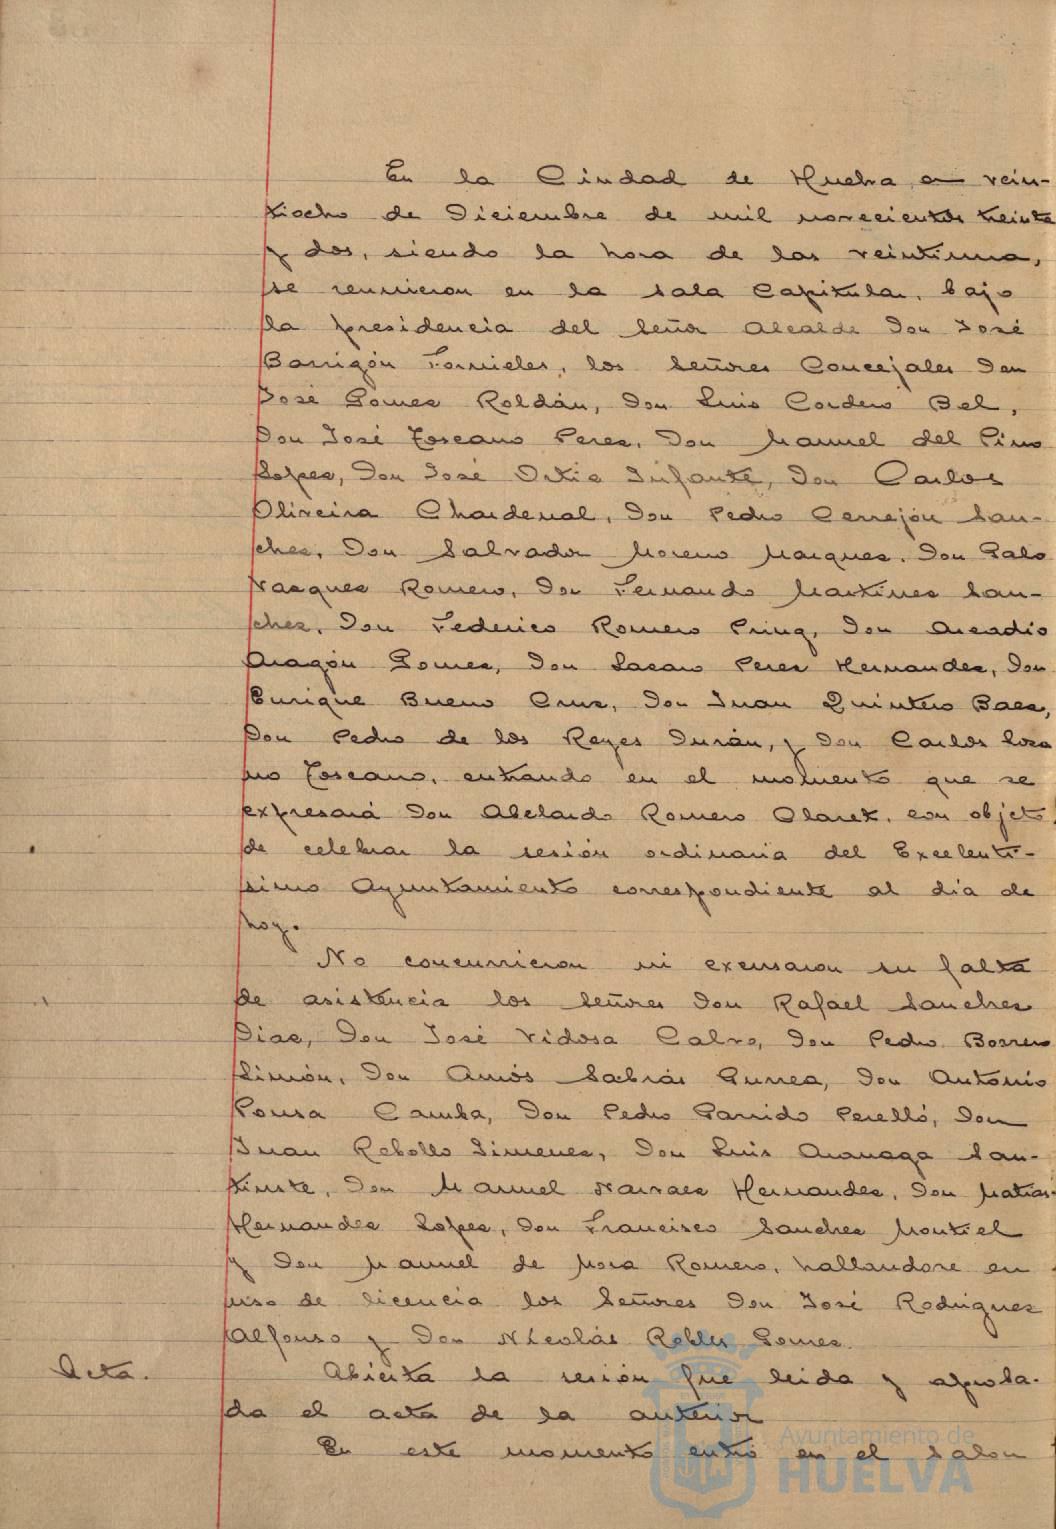 En la Ciudad de Huelva en vein-
tiocho de Diciembre de mil novecientos treinta
y dos, siendo la hora de las veintiuna,
se reunieron en la sala Capitular, bajo
la presidencia del Señor Alcalde Don José
Barrigón Fornieles, los Señores Concejales Don
José Gomez Roldán, Don Luis Cordero Bel,
Don José Toscano Perez, Don Manuel del Pino
Lopez, Don José Ortiz Infante, Don Carlos
Oliveira Chardenal, Don Pedro Cerrejón San-
chez, Don Salvador Moreno Marquez, Don Galo
Vazquez Romero, Don Fernando Martinez San-
chez, Don Federico Romero Pring, Don Arcadio
Aragón Gomez, Don Lazaro Perez Hernandez, Don
Enrique Bueno Cruz, Don Juan Quintero Baez,
Don Pedro de los Reyes Durán, y Don Carlos
no Toscano, entrando en el momento que se
expresará Don Abelardo Romero Claret, con objeto
de celebrar la sesión ordinaria del Excelentí-
simo Ayuntamiento correspondiente al dia de
hoy.
No concurrieron ni excusaron su falta
de asistencia los Señores Don Rafael Sanchez
Diaz, Don José Vidosa Calvo, Don Pedro Borrero
Limón, Don Amós Sabrás Gurrea, Don Antonio
Pousa Camba, Don Pedro Garrido Perelló, Don
Juan Rebollo Jimenez, Don Luis San-
Don Manuel Narvaez Hernandez, Don Matias
Hernandez Lopez, Don Francisco Sanchez Montiel
y Don Manuel de Mora Romero, hallandose en
uso de licencia los Señores Don José Rodriguez
Alfonso y Don Nicolás Robles Gomez.
Acta.
Abierta la sesión fue leida y aproba-
da el acta de la anterior
En este momento entró en el Salon
Ayuntamiento de
HUELVA